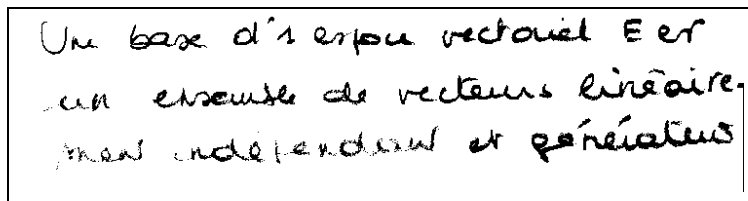 Une base d'1 espace vectoriel E est
un ensemble de vecteurs linéaire-
ment indépendant et générateurs